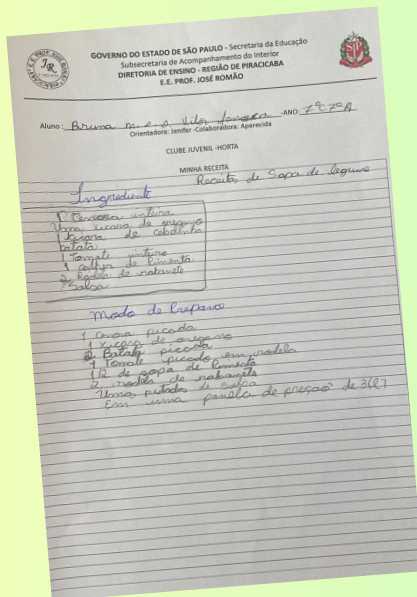 GOVERNO DO ESTADO DE SÃO PAULO - Secretaria da Educação
Subsecretaria de Acompanhamento do Interior
DIRETORIA DE ENSINO - REGIÃO DE PIRACICABA
E.E. PROF. JOSÉ ROMÃO
Aluno: Bruna m. e. o Vitor -ANO: 7º 7ºA
Orientadora: Jenifer -Colaboradora: Aparecida
CLUBE JUVENIL -HORTA
MINHA RECEITA
Receita de Sopa de legume
Ingrediente
1 inteira
Uma xicara de oregano
1 xicara de cebolinha
batata
1 Tomate inteiro
1 colher de Pimenta
2 Rodela de rabanete
Salsa
Modo de Preparo
1 picada
1 xicara de oregano
2 Batata picada
1 Tomate picado em rodela
1/2 de sopa de Pimenta
2 rodelas de rabanete
Uma pitada de Salsa
Em uma panela de preção de 3(L)